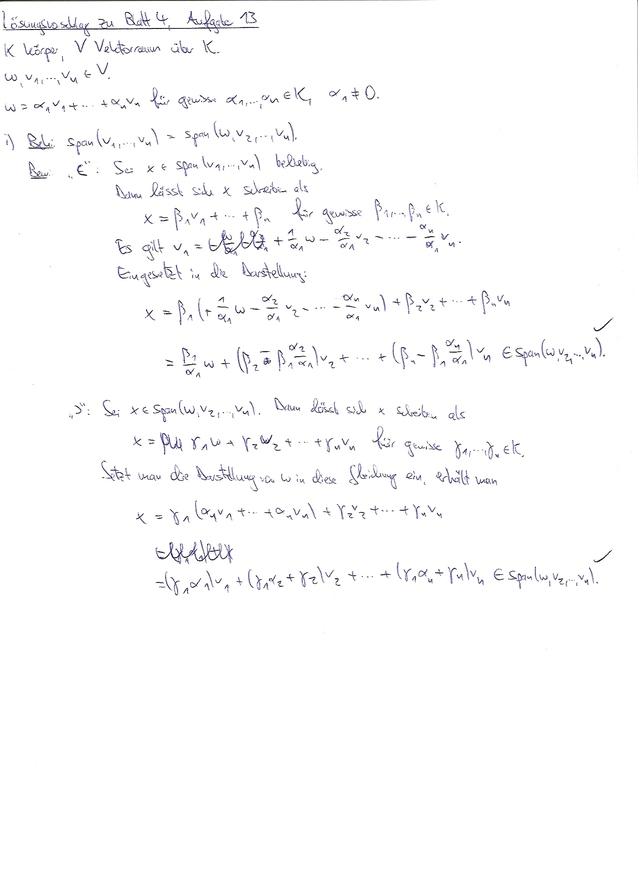 Lösungsvoschlag zu Blatt 4, Aufgabe 13
K Körper, V Vektorraum über K.
w, v₁, ..., vₙ ∈ V.
w = α₁v₁ + ... + αₙvₙ für gewisse α₁, ..., αₙ ∈ K, α₁ ≠ 0.
i) Beh: span(v₁, ..., vₙ) = span(w, v₂, ..., vₙ).
Bew: „⊂": Sei x ∈ span(v₁, ..., vₙ) beliebig.
Dann lässt sich x schreiben als
x = β₁v₁ + ... + βₙ für gewisse β₁, ..., βₙ ∈ K.
Es gilt v₁ = + 1/α₁ w − α₂/α₁ v₂ − ... − αₙ/α₁ vₙ.
Eingesetzt in die Darstellung:
x = β₁(+ 1/α₁ w − α₂/α₁ v₂ − ... − αₙ/α₁ vₙ) + β₂v₂ + ... + βₙvₙ
= β₁/α₁ w + (β₂ − β₁ α₂/α₁)v₂ + ... + (βₙ − β₁ αₙ/α₁)vₙ ∈ span(w, v₂, ..., vₙ). ✓
„⊃": Sei x ∈ span(w, v₂, ..., vₙ). Dann lässt sich x schreiben als
x = γ₁w + γ₂v₂ + ... + γₙvₙ für gewisse γ₁, ..., γₙ ∈ K.
Setzt man die Darstellung von w in diese Gleichung ein, erhält man
x = γ₁(α₁v₁ + ... + αₙvₙ) + γ₂v₂ + ... + γₙvₙ
= (γ₁α₁)v₁ + (γ₁α₂ + γ₂)v₂ + ... + (γ₁αₙ + γₙ)vₙ ∈ span(w, v₂, ..., vₙ). ✓